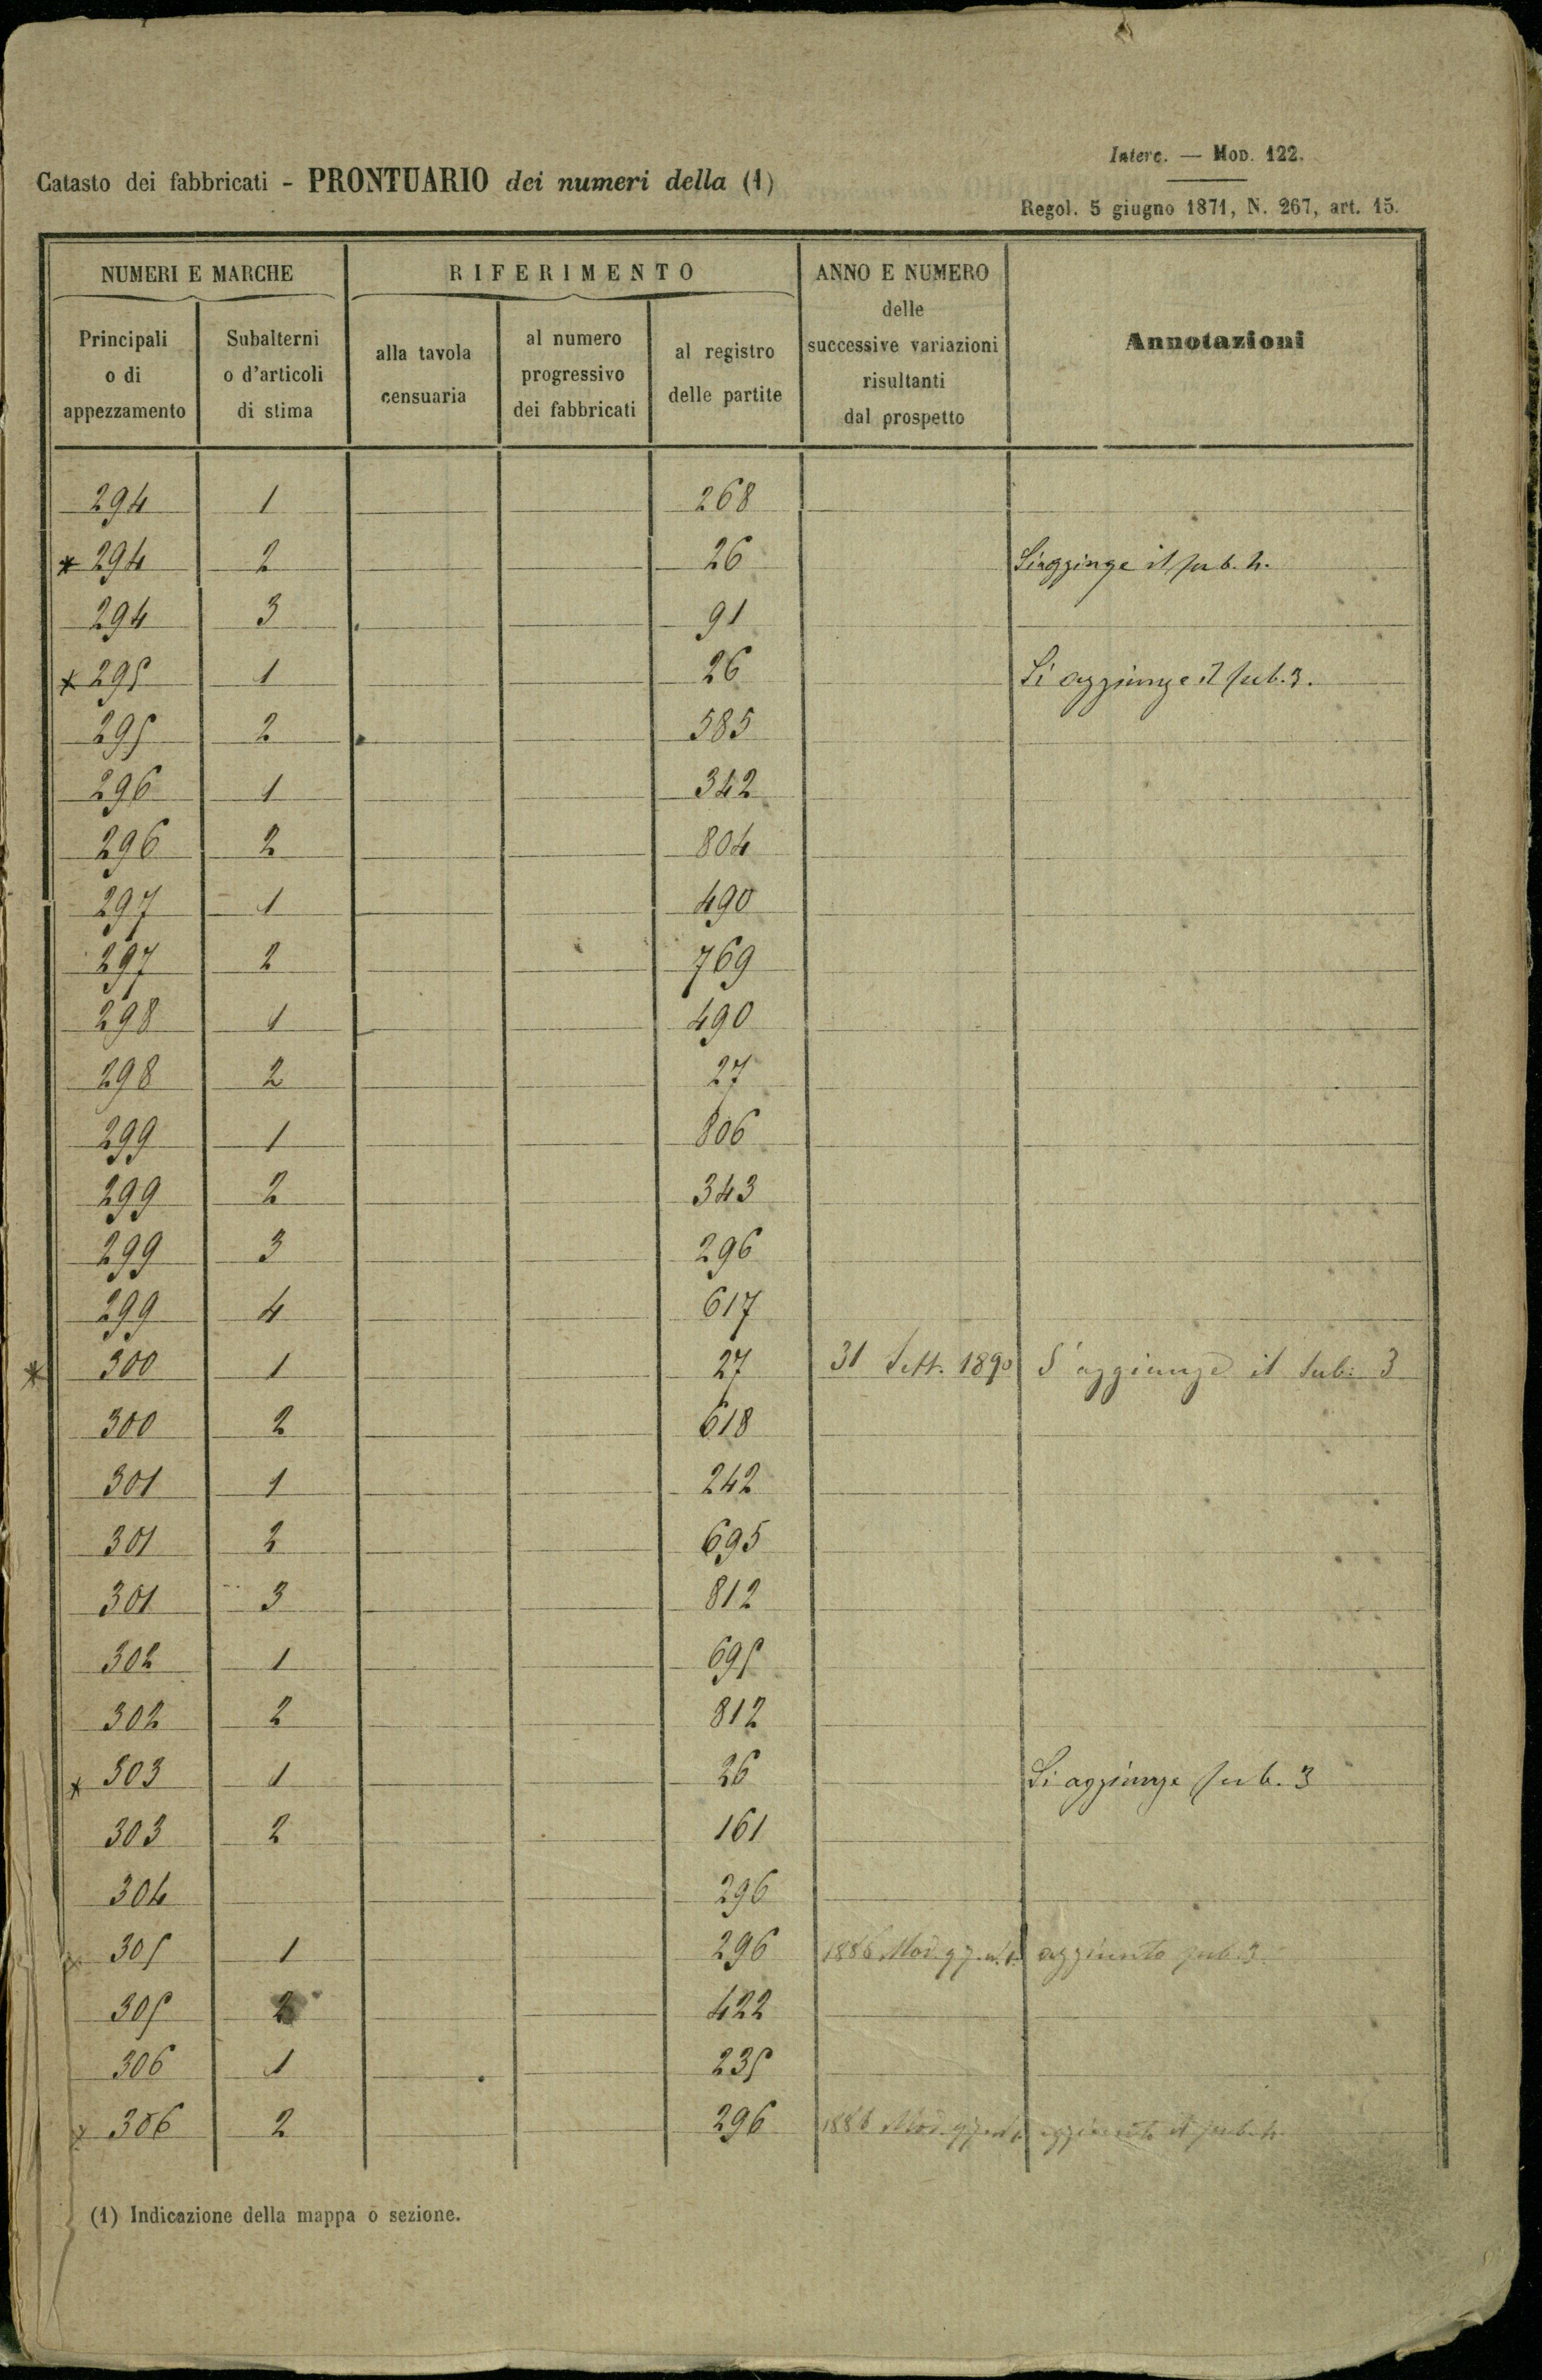 Interc. — MOD. 122.
Catasto dei fabbricati - PRONTUARIO dei numeri della (1)
Regol. 5 giugno 1871, N. 267, art. 15.
NUMERI E MARCHE RIFERIMENTO ANNO E NUMERO delle successive variazioni risultanti dal prospetto Annotazioni
Principali o di appezzamento Subalterni o d'articoli di stima alla tavola censuaria al numero progressivo dei fabbricati al registro delle partite
294 1 268
* 294 2 26 Si aggiunge il sub. 4.
294 3 91
* 295 1 26 Si aggiunge il sub. 3.
295 2 585
296 1 342
296 2 804
297 1 490
297 2 769
298 1 490
298 2 27
299 1 806
299 2 343
299 3 296
299 4 617
* 300 1 27 31 Sett. 1890 S'aggiunge il sub: 3
300 2 618
301 1 242
301 2 695
301 3 812
302 1 695
302 2 812
* 303 1 26 Si aggiunge sub. 3
303 2 161
304 296
305 1 296 1886 Mod. 97 aggiunto sub. 3.
305 2 422
306 1 235
306 2 296 1886 Mod. 97 aggiunto il sub.
(1) Indicazione della mappa o sezione.